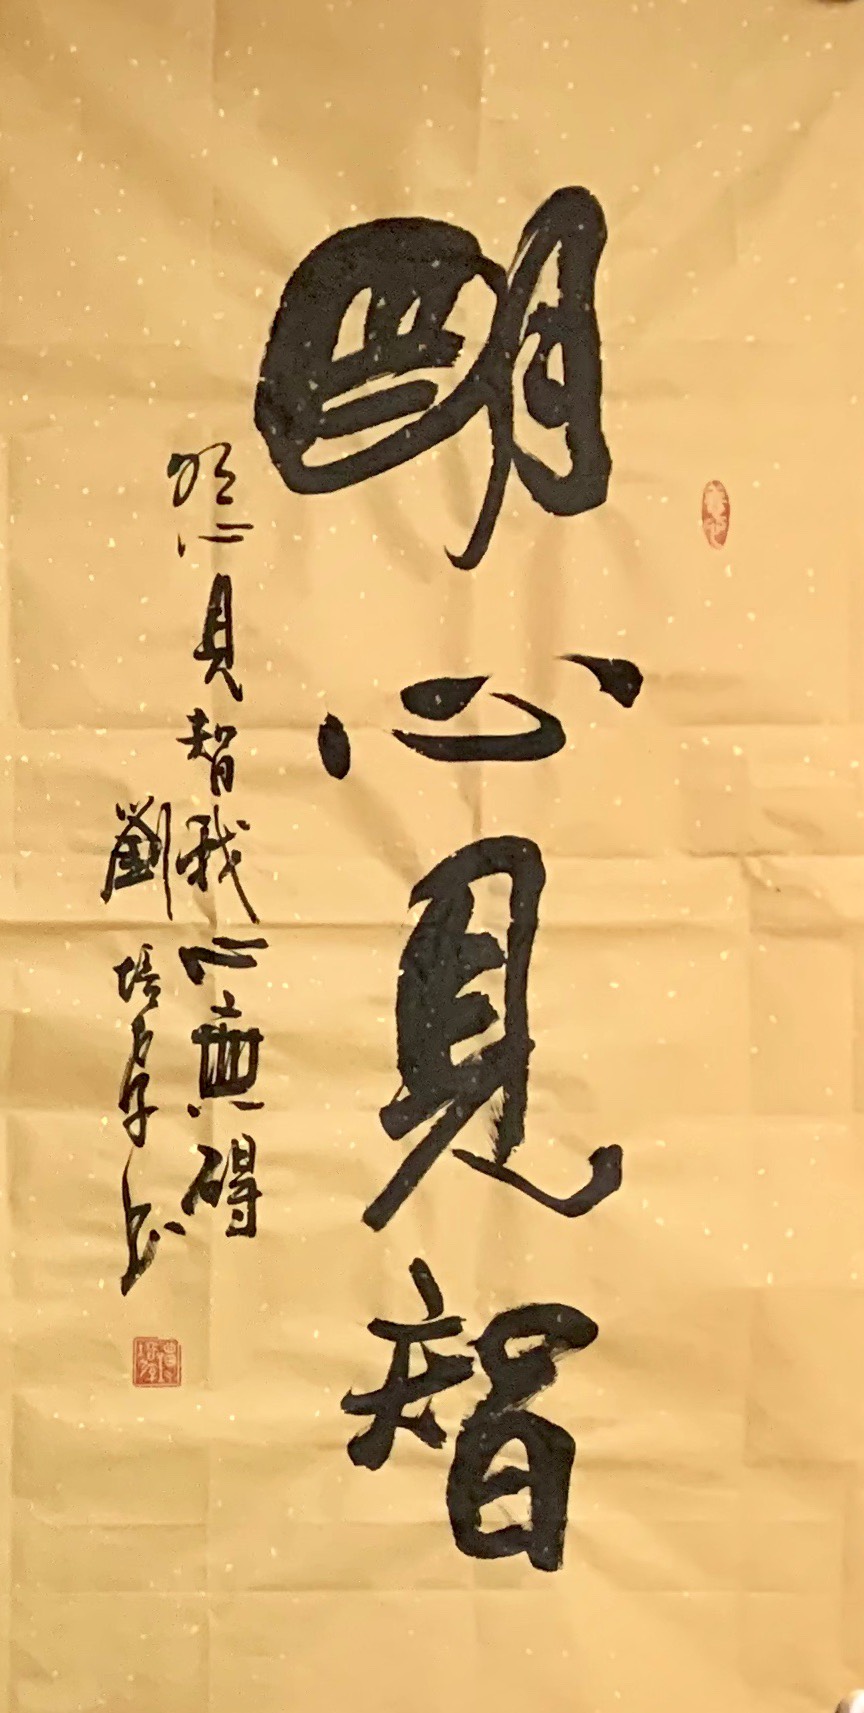 明心見智
明心見智我心無碍
劉培书